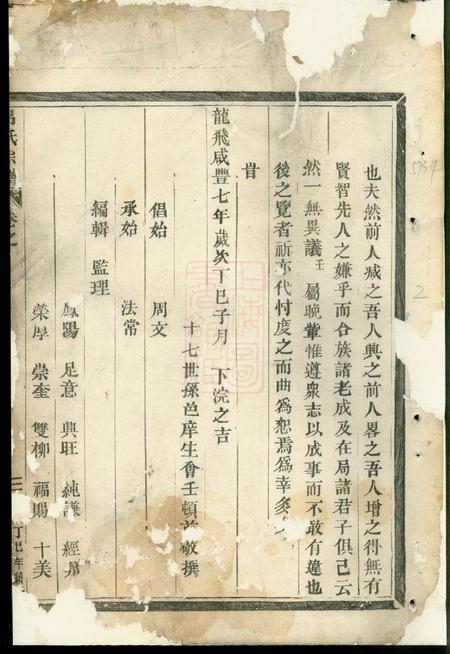 也夫然前人減之吾人興之前人畧之吾人增之得無有
賢智先人之嫌乎而合族諸老成及在局諸君子俱已云
然一無異議壬屬晚輩惟遵衆志以成事而不敢有違也
後之覽者祈亦代忖度之而曲爲恕焉爲幸多
旹
龍飛咸豐七年歲次丁巳子月下浣之吉
十七世孫邑庠生會壬頓首敬撰
倡始 周文
承始 法常
編輯 監理
鳳陽 足意 興旺 純謙 經邦
榮厚 崇奎 雙柳 福賜 十美
氏宗譜
卷之
丁巳年
5734
2